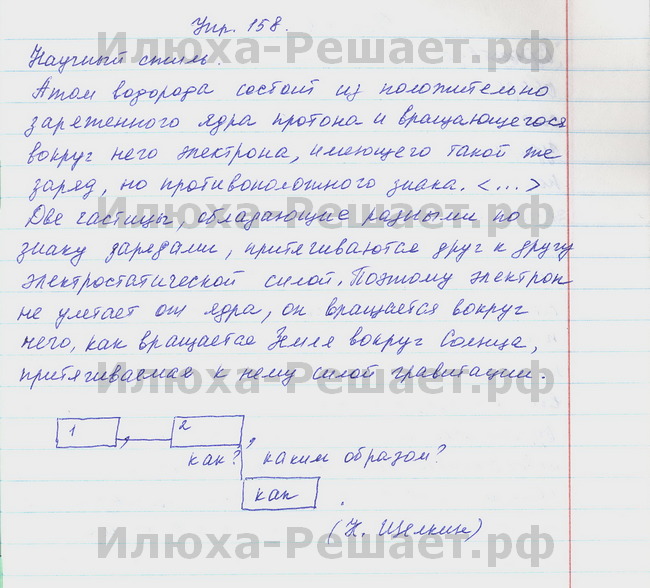 Упр. 158.
Илюха-Решает.рф
Научный стиль.
Атом водорода состоит из положительно
заряженного ядра протона и вращающегося
Илюха-Решает.рф
вокруг него электрона, имеющего такой же
заряд, но противоположного знака. <...>
Илюха-Решает.рф
Две частицы, обладающие разными по
знаку зарядами, притягиваются друг к другу
электростатической силой. Поэтому электрон
не улетает от ядра, он вращается вокруг
него, как вращается Земля вокруг Солнца,
Илюха-Решает.рф
притягиваемая к нему силой гравитации.
1 , 2 ,
как? каким образом?
как .
(К. Щелкин)
Илюха-Решает.рф